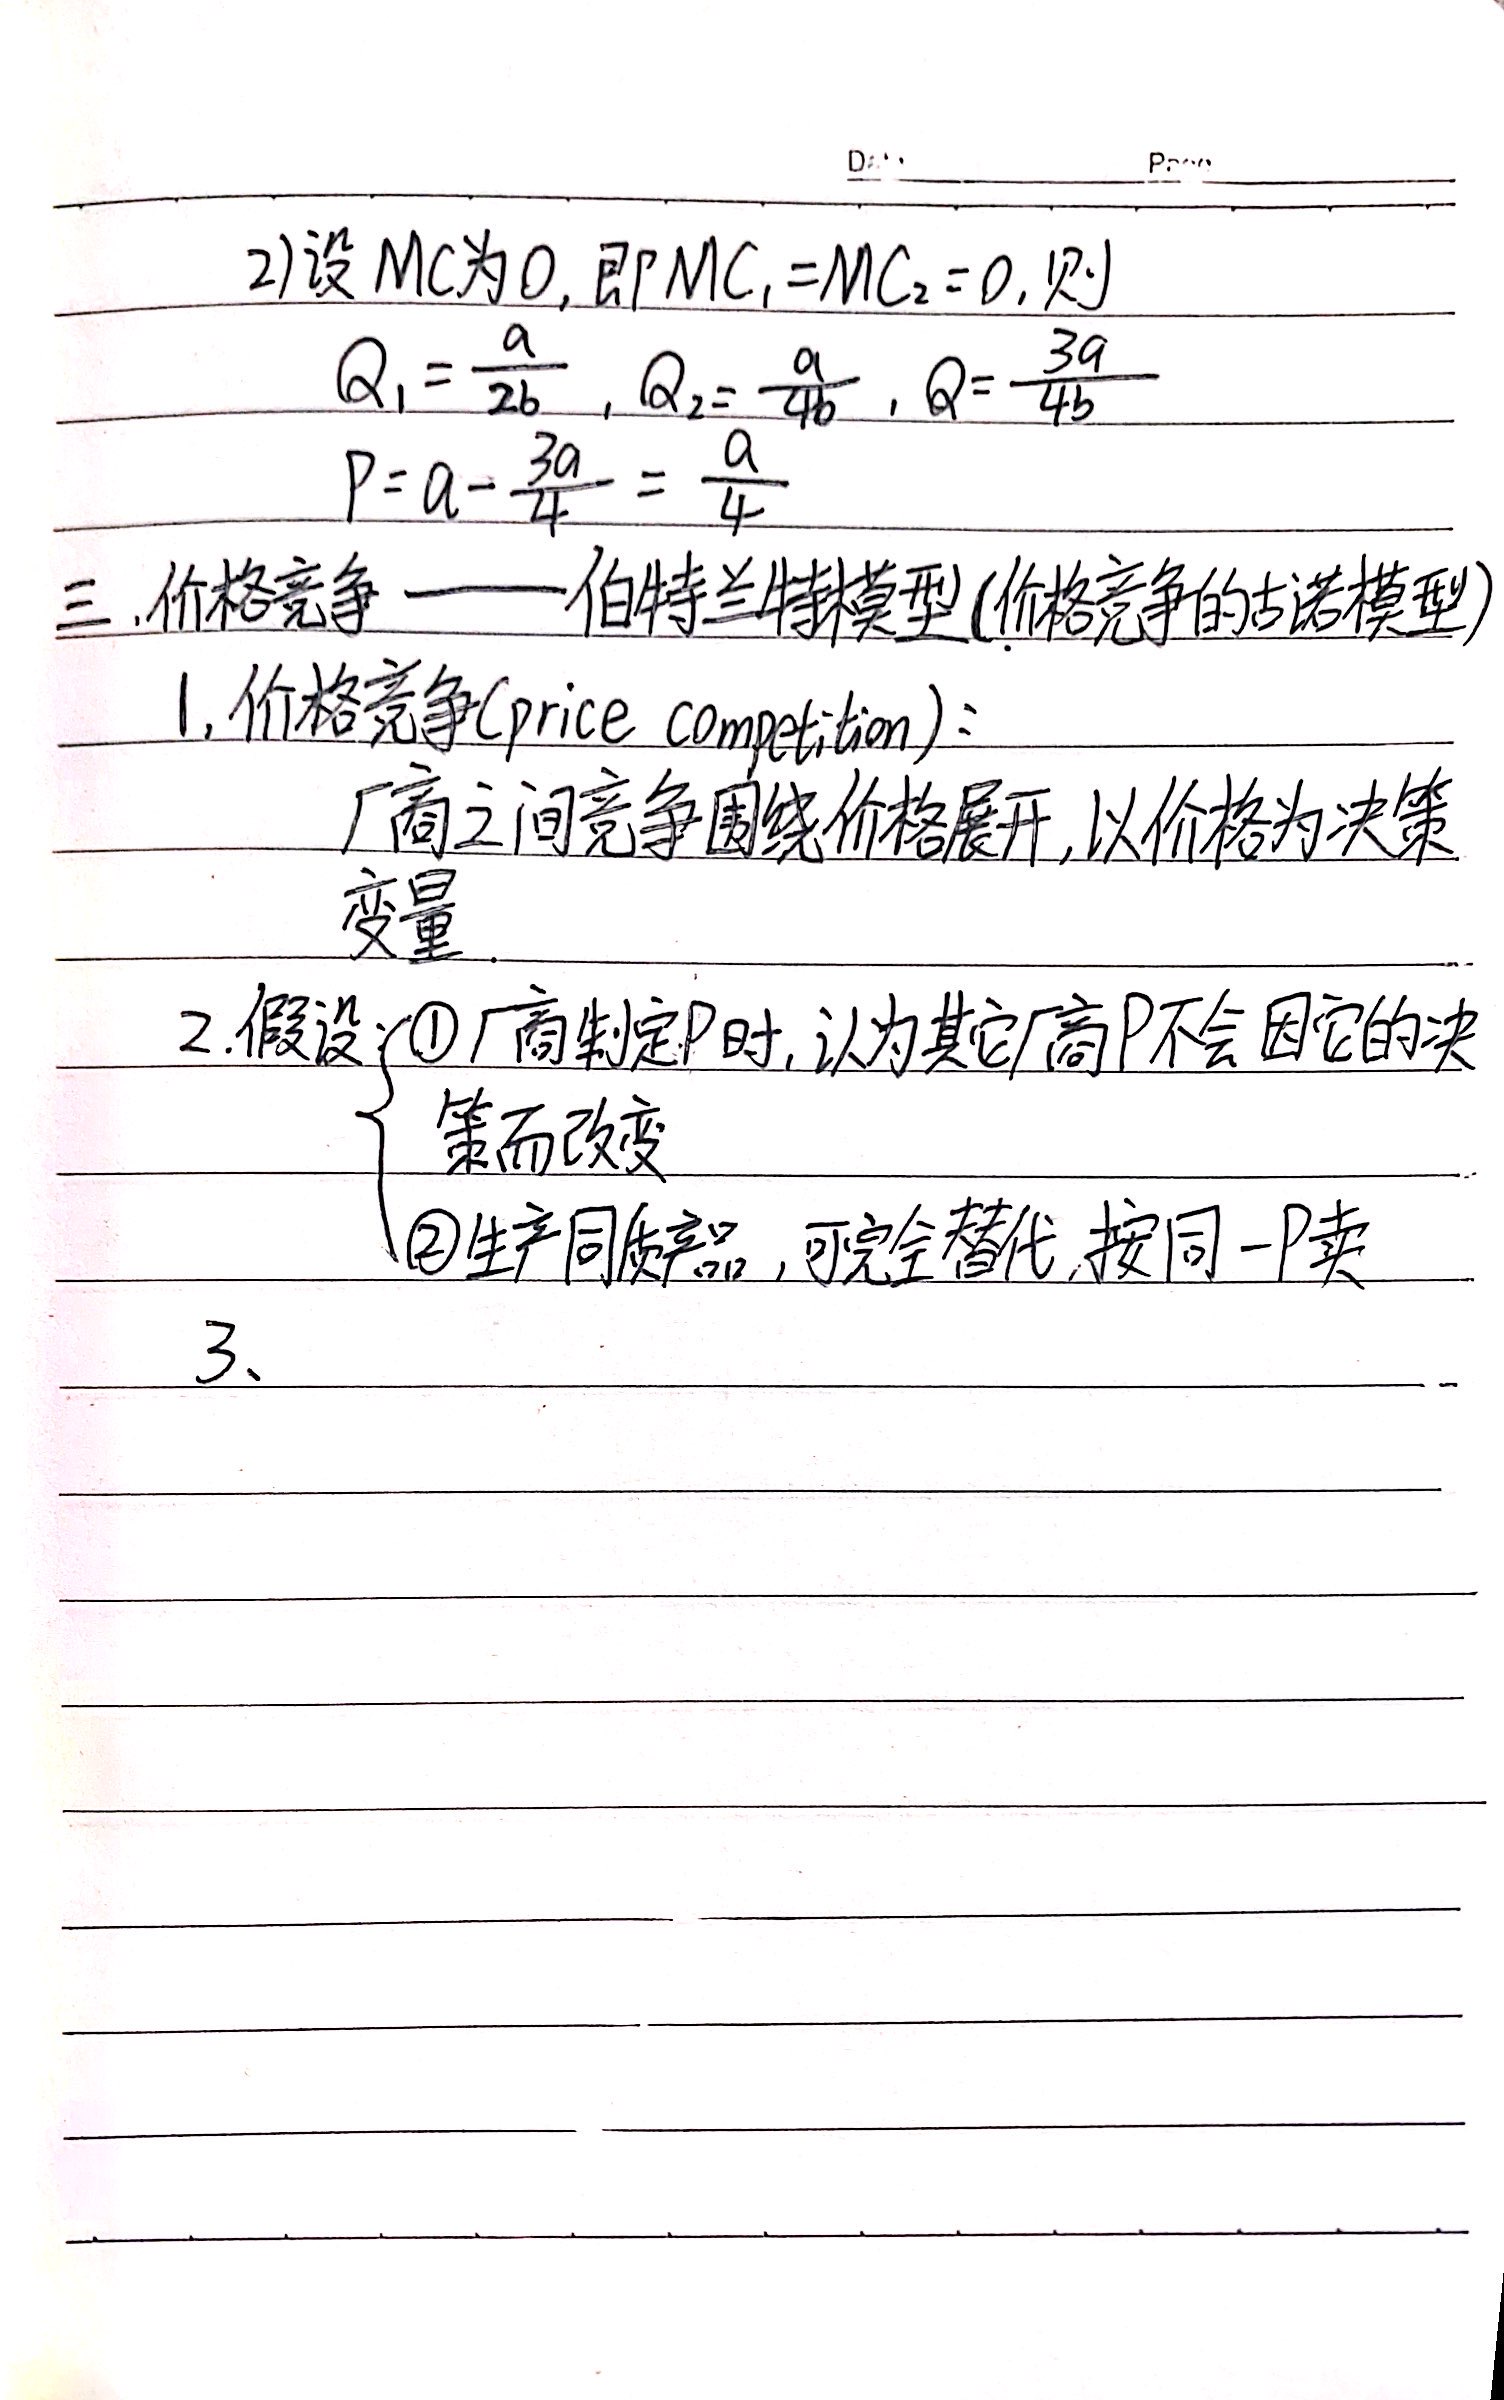 Date Page
2)设MC为0,即MC₁=MC₂=0,则
Q₁=a/2b,Q₂=a/4b,Q=3a/4b
P=a-3a/4=a/4
三.价格竞争——伯特兰特模型(价格竞争的古诺模型)
1.价格竞争(price competition):
厂商之间竞争围绕价格展开,以价格为决策
变量.
2.假设:①厂商制定P时,认为其它厂商P不会因它的决
策而改变
②生产同质产品,可完全替代,按同一P卖
3、